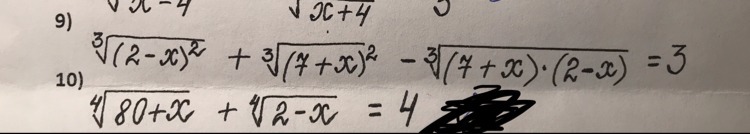 √x-4 √x+4
9) ∛(2-x)² + ∛(7+x)² - ∛(7+x)·(2-x) = 3
10) ∜80+x + ∜2-x = 4